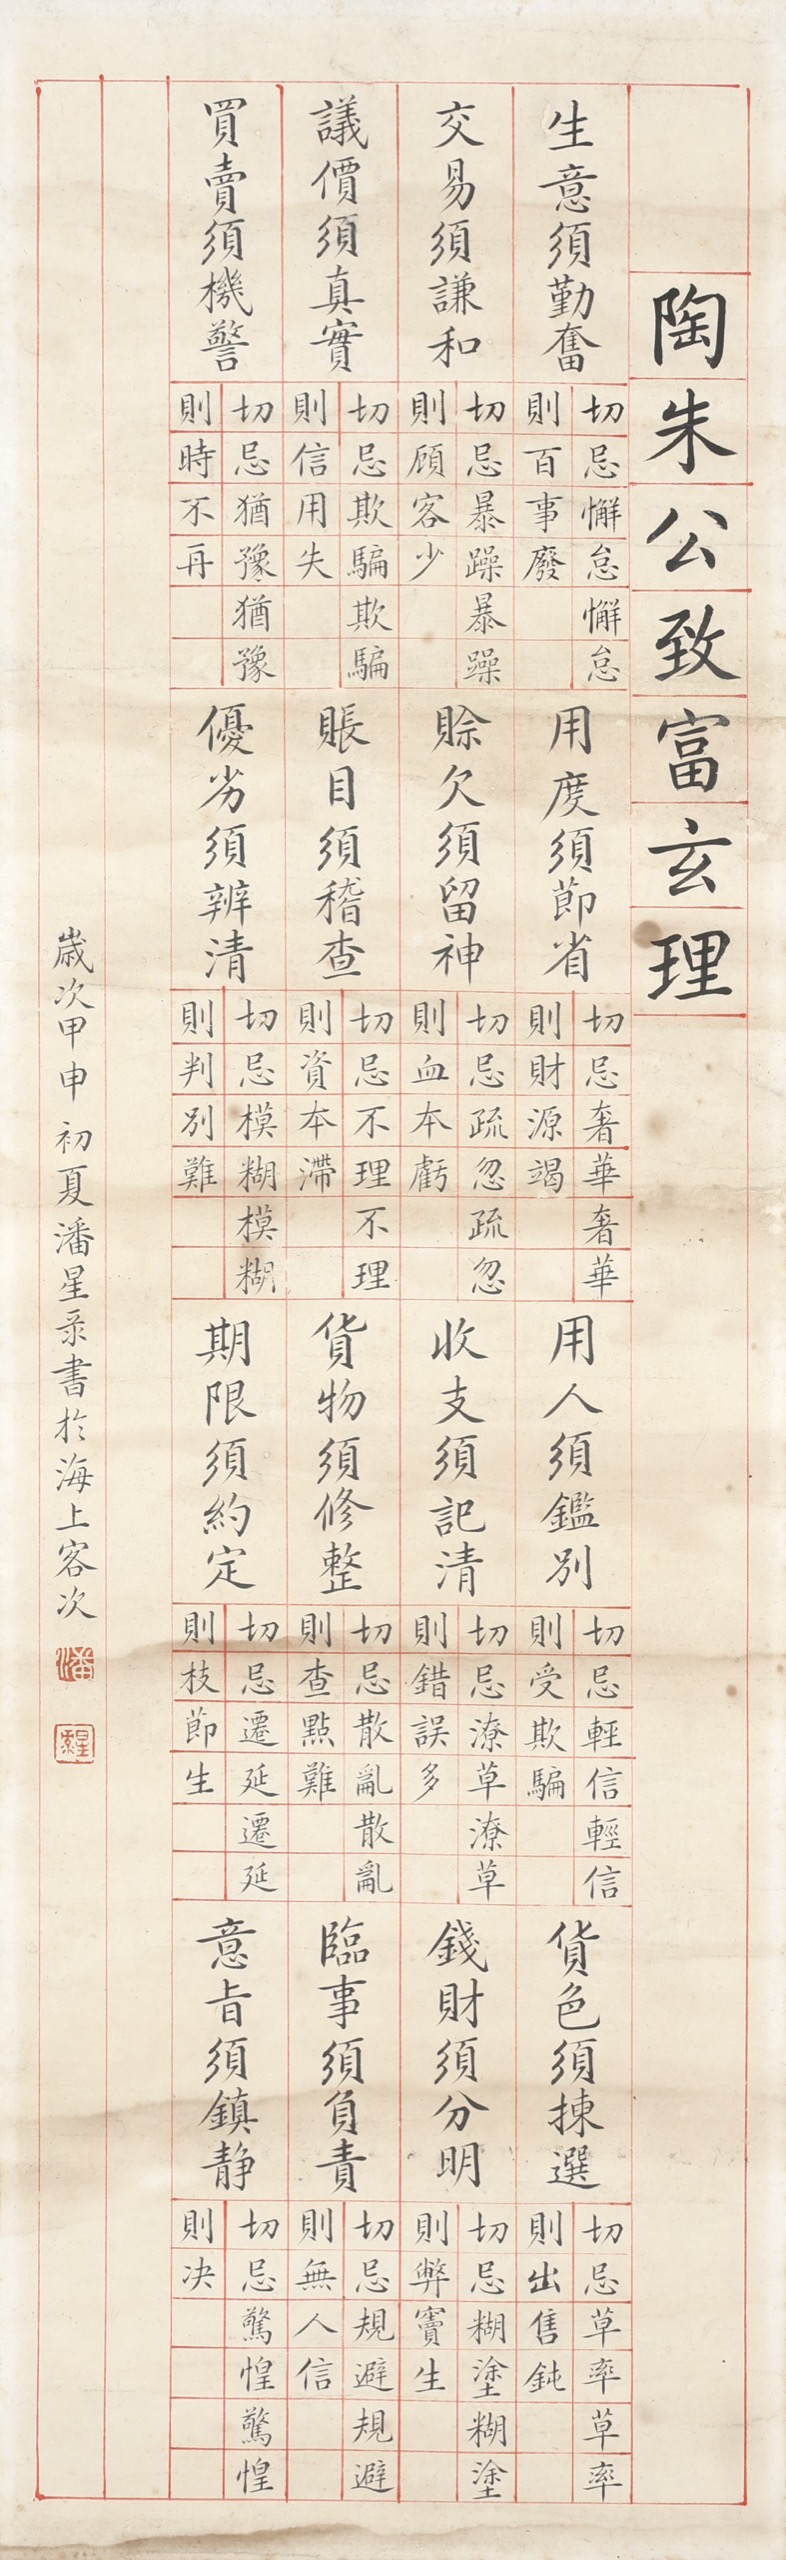 陶朱公致富玄理
生意須勤奮
切忌懈怠懈怠
則百事廢
用度須節省
切忌奢華奢華
則財源竭
用人須鑑別
切忌輕信輕信
則受欺騙
貨色須揀選
切忌草率草率
則出售鈍
交易須謙和
切忌暴躁暴躁
則顧客少
賒欠須留神
切忌疏忽疏忽
則血本虧
收支須記清
切忌潦草潦草
則錯誤多
錢財須分明
切忌糊塗糊塗
則弊竇生
議價須真實
切忌欺騙欺騙
則信用失
賬目須稽查
切忌不理不理
則資本滯
貨物須修整
切忌散亂散亂
則查點難
臨事須負責
切忌規避規避
則無人信
買賣須機警
切忌猶豫猶豫
則時不再
優劣須辨清
切忌模糊模糊
則判別難
期限須約定
切忌遷延遷延
則枝節生
意旨須鎮静
切忌驚惶驚惶
則决
歲次甲申初夏潘星彔書於海上客次
潘